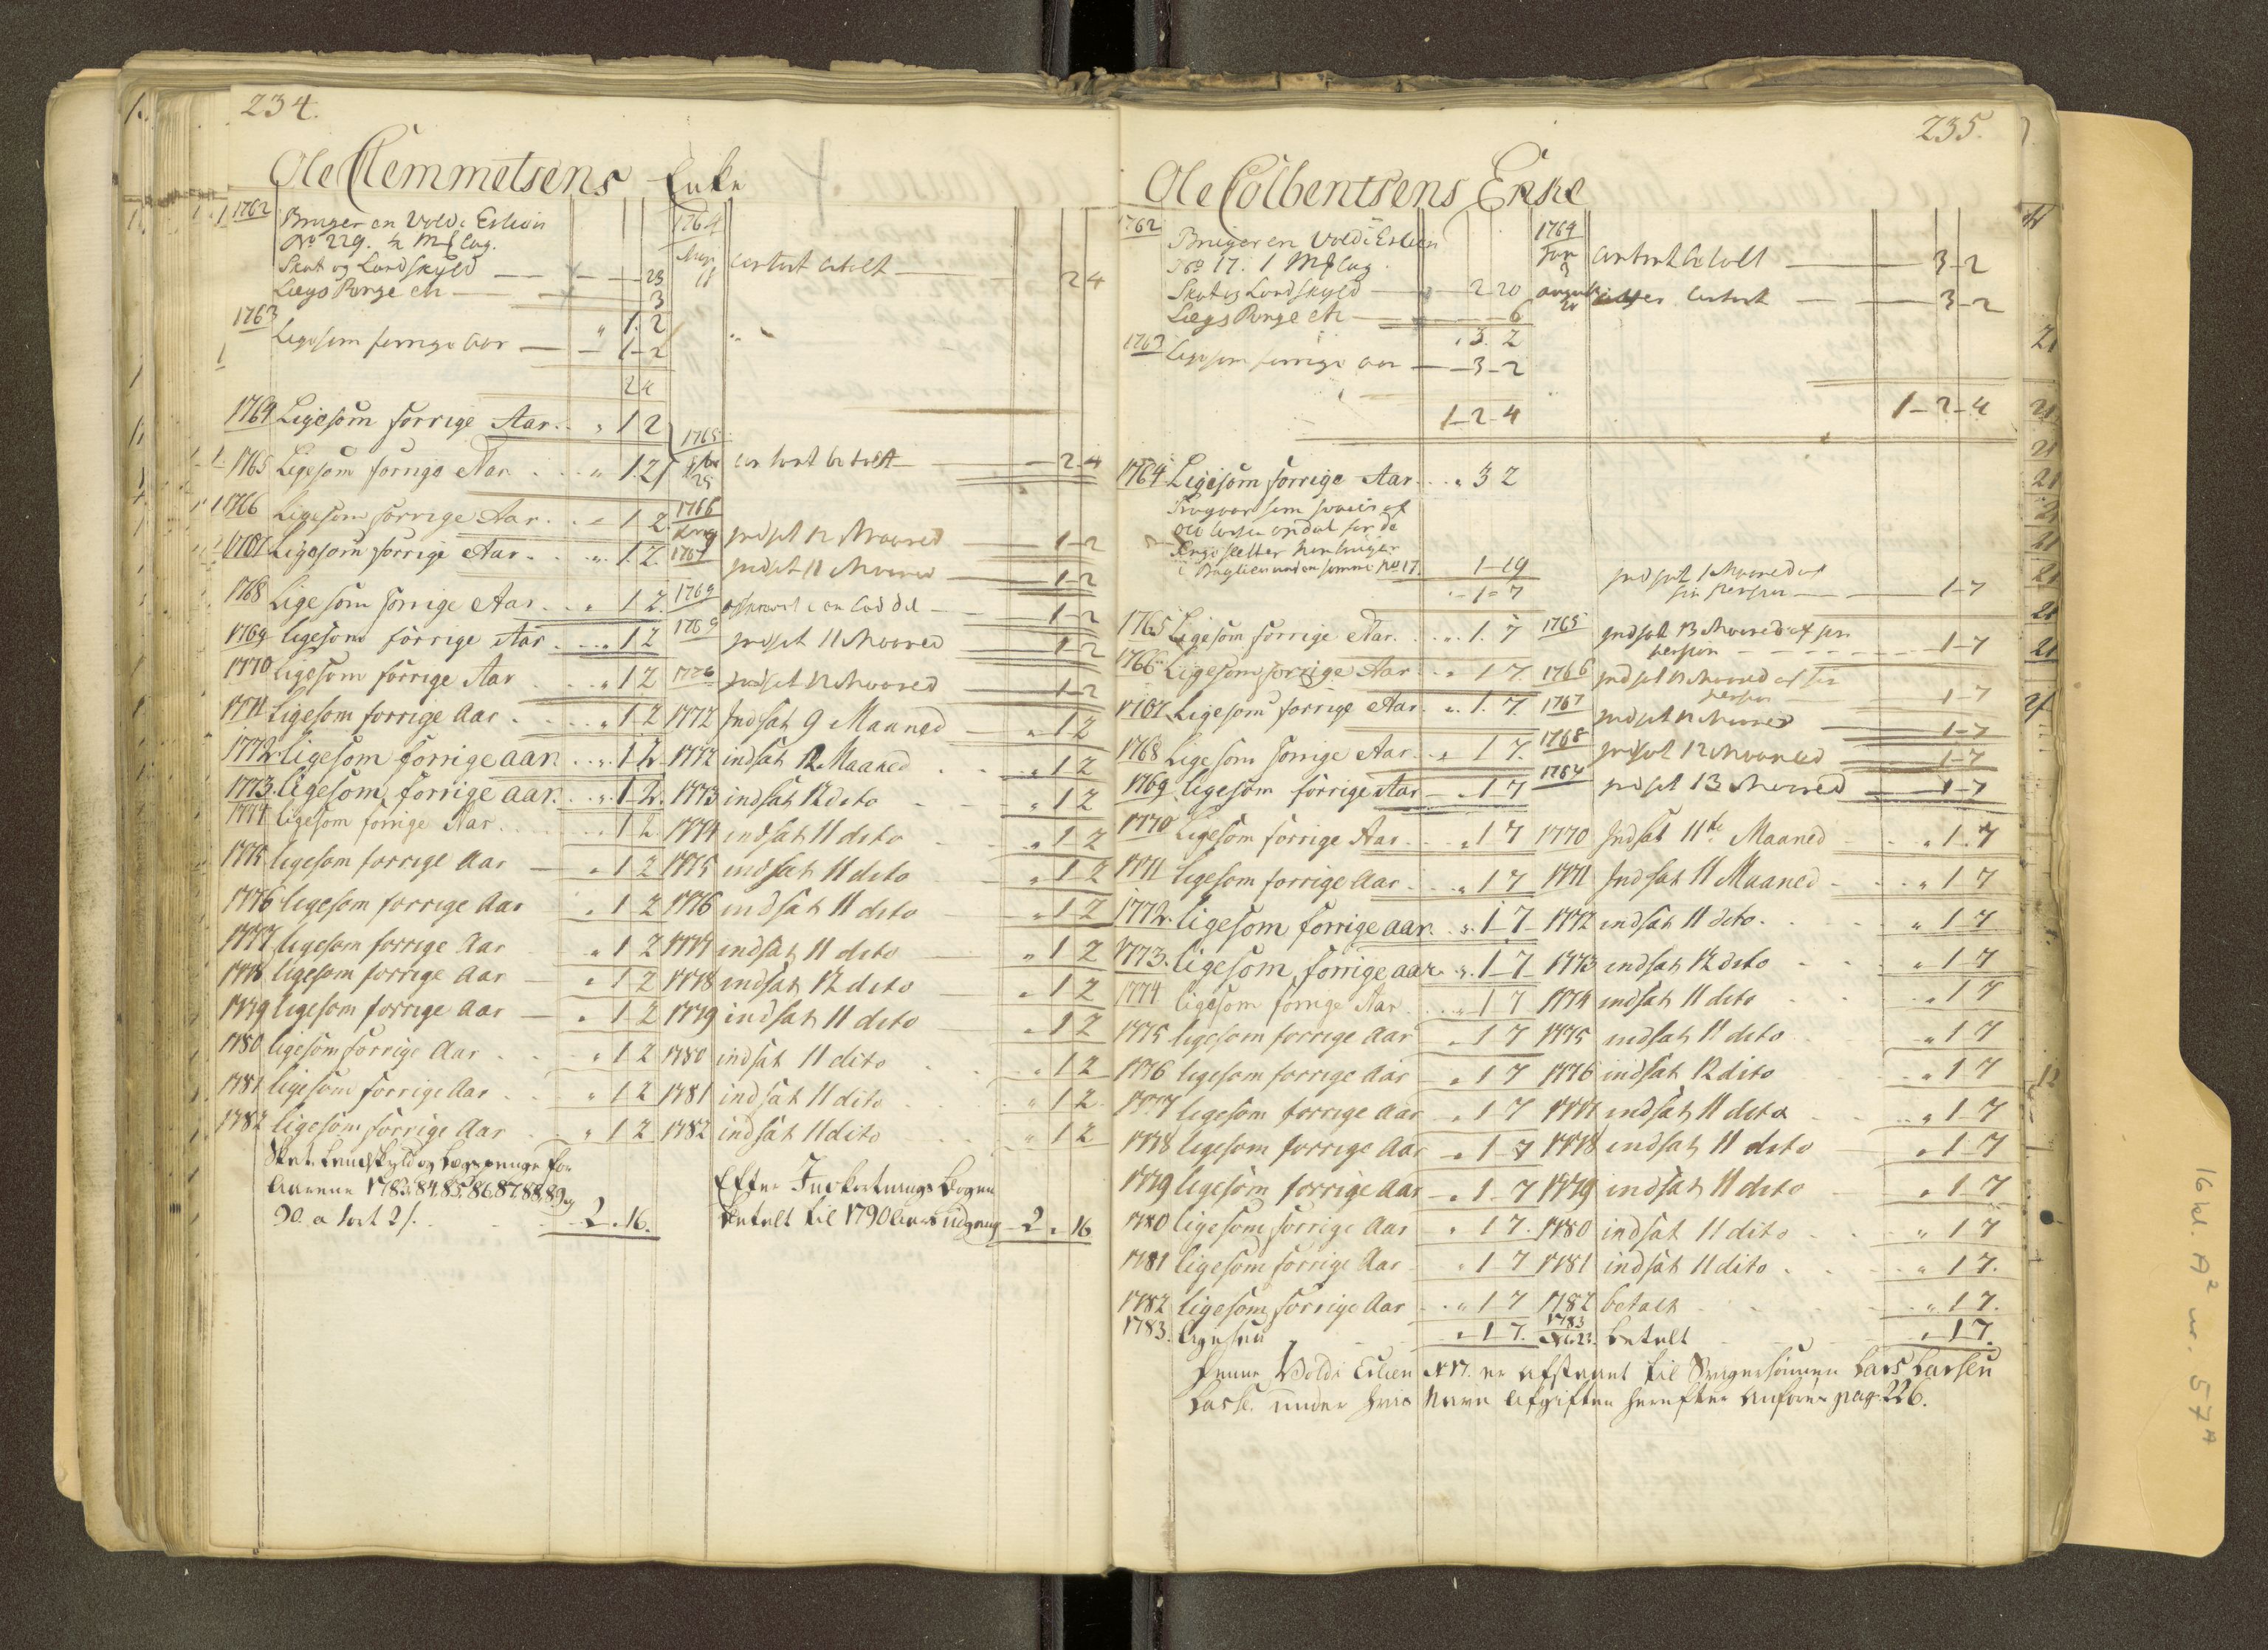 234.
Ole Clemmetsens Enke
1762 Bruger en Vold i Eslien
No 229. ½ Mk lag.
Skat og Landskyld 23
Lægs Penge etc 3
" 1. 2
1763 Lige som forrige aar 1-2
24
1764 Ligesom forrige Aar. " 1 2
1765 Ligesom forrige Aar " 1.2
1766 Ligesom forrige Aar. " 1 2.
1767 Ligesom forrige Aar. " 1. 2.
1768 Lige som forrige Aar. " 1 2.
1769 ligesom forrige Aar " 1 2
1770 ligesom forrige Aar " 1 2
1771 ligesom forrige Aar " 1-2
1772 ligesom forrige aar. " 1-2.
1773. ligesom forrige aar. " 1-2.
1774 ligesom forrige Aar. 1 2
1775 ligesom forrige Aar " 1 2
1776 ligesom forrige Aar " 1 2
1777 ligesom forrige Aar " 1 2
1778 ligesom forrige Aar " 1 2
1779 ligesom forrige Aar " 1 2
1780 ligesom forrige Aar " 1 2
1781 ligesom forrige Aar " 1 2
1782 ligesom forrige Aar " 1 2
Skat Landskyld og Lægspenge for
Aarene 1783.84.85.86.87.88.89 og
90. a 1 ort 2 s. 2 " 16.
1764
11 contant betalt 2 4
1765
25 contant betalt 2-4
1766 indset 12 Maaned 1-2
1767 indset 11 Maaned 1-2
1768 1-2
1769 indset 11 Maaned 1-2
1770 indset 12 Maaned 1-2
1771 Indsat 9 Maaned " 1 2
1772 indsat 12 Maaned " 1 2
1773 indsat 12 dito " 1 2
1774 indsat 11 dito " 1-2
1775 indsat 11 dito " 1-2
1776 indsat 11 dito " 1-2
1777 indsat 11 dito " 1 2
1778 indsat 12 dito " 1 2
1779 indsat 11 dito " 1 2
1780 indsat 11 dito " 1 2
1781 indsat 11 dito " 1 2
1782 indsat 11 dito " 1 2
Efter Bogen
betalt til 1790 Aars udgang 2 " 16
235.
Ole Colbentsens Enke
1762 Bruger en Vold i Eslien
No 17. 1 Mk lag.
Skat og Landskyld 2-20
Lægs Penge etc 6
" 3. 2
1763 Lige som forrige aar 3-2
1-2-4
1764 Ligesom forrige Aar. " 3 2
No 17. 1-19
" 1-7
1765 Ligesom forrige Aar. " 1. 7
1766 Ligesom forrige Aar " 1 7.
1767 Ligesom forrige Aar. " 1. 7.
1768 Lige som forrige Aar " 1 7.
1769 ligesom forrige Aar " 1-7
1770 Ligesom forrige Aar " 1 7
1771 ligesom forrige Aar " 1 7
1772. ligesom forrige aar. " 1-7
1773. ligesom forrige aar. " 1-7
1774 ligesom forrige Aar " 1 7
1775 ligesom forrige Aar " 1 7
1776 ligesom forrige Aar " 1 7
1777 ligesom forrige Aar " 1 7
1778 ligesom forrige Aar " 1-7
1779 ligesom forrige Aar " 1-7
1780 ligesom forrige Aar " 1 7.
1781 ligesom forrige Aar " 1 7
1782 ligesom forrige Aar " 1-7
1783. ligesom " 1-7.
1764
Jan 3 contant betalt 3-2
August 20 contant 3-2
1-2-4
indsat 1 Maaned af
sin person 1-7
1765 indsat 13 Maaned af sin
person 1-7
1766 indsat 12 Maaned af sin
person 1-7
1767 indset 12 Maaned 1-7
1768 indset 12 Maaned 1-7
indset 13 Maaned 1-7
1770 Indsat 11te Maaned " 1.7
1771 Indsat 11 Maaned " 1 7
1772 indsat 11 dito. " 1-7
1773 indsat 12 dito " 1-7
1774 indsat 11 dito " 1 7
1775 indsat 11 dito " 1 7
1776 indsat 12 dito " 1 7
1777 indsat 11 dito " 1-7
1778 indsat 11 dito " 1-7
1779 indsat 11 dito " 1-7
1780 indsat 11 dito " 1 7
1781 indsat 11 dito " 1 7.
1782 betalt " 1 7.
1783 betalt " 1 7.
Denne Vold i Eslien No 17. er afstaaet til Svigersønnen Lars Larsen
under hvis Navn Afgiften herefter anføres pag. 226.
16 kl. A² nr. 57ᴬ